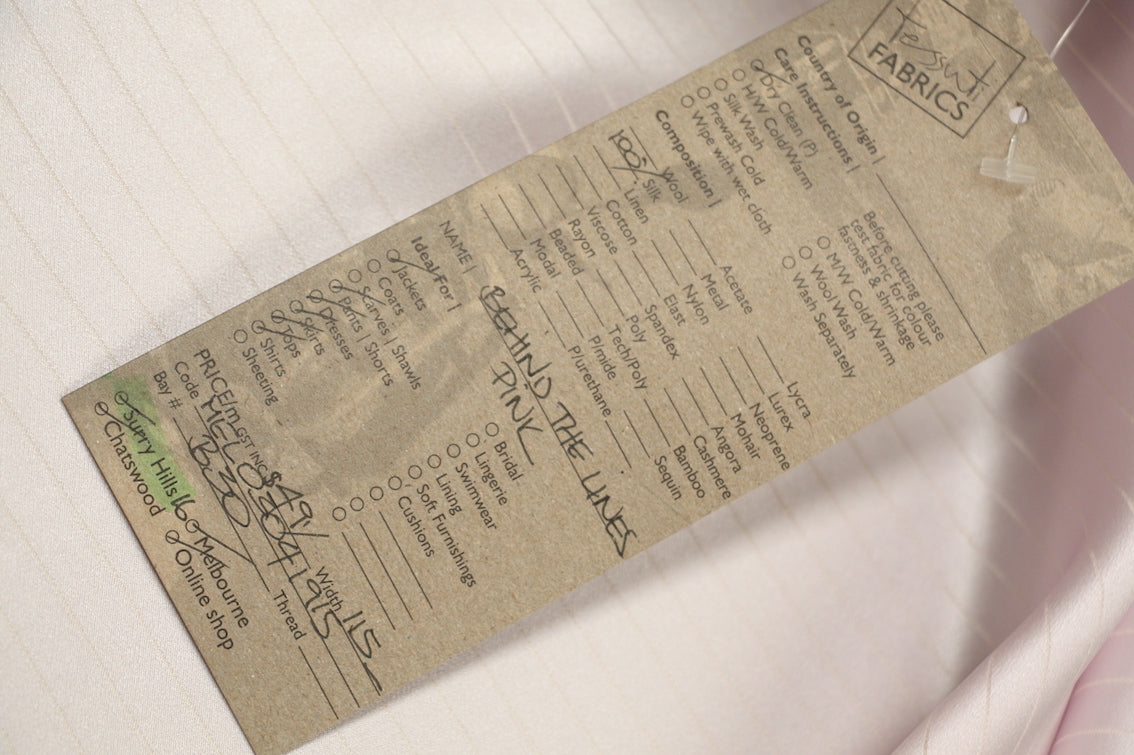 tessuti
FABRICS
Country of Origin |
Care Instructions |
Dry Clean (P)
H/W Cold/Warm
Silk Wash
Prewash Cold
Wipe with wet cloth
Before cutting please
test fabric for colour
fastness & shrinkage
M/W Cold/Warm
Wool Wash
Wash Separately
Composition |
Wool
100% Silk
Linen
Cotton
Viscose
Rayon
Beaded
Modal
Acrylic
Acetate
Metal
Nylon
Elast
Spandex
Poly
Tech/Poly
P/mide
P/urethane
Lycra
Lurex
Neoprene
Mohair
Angora
Cashmere
Bamboo
Sequin
NAME | BEHIND THE LINES
PINK
Ideal For |
Jackets
Coats
Scarves | Shawls
Pants | Shorts
Dresses
Skirts
Tops
Shirts
Sheeting
Bridal
Lingerie
Swimwear
Lining
Soft Furnishings
Cushions
PRICE/m GST INC $49/ Width 115
Code
Bay # B220 Thread
Surry Hills 16 Melbourne
Chatswood Online shop